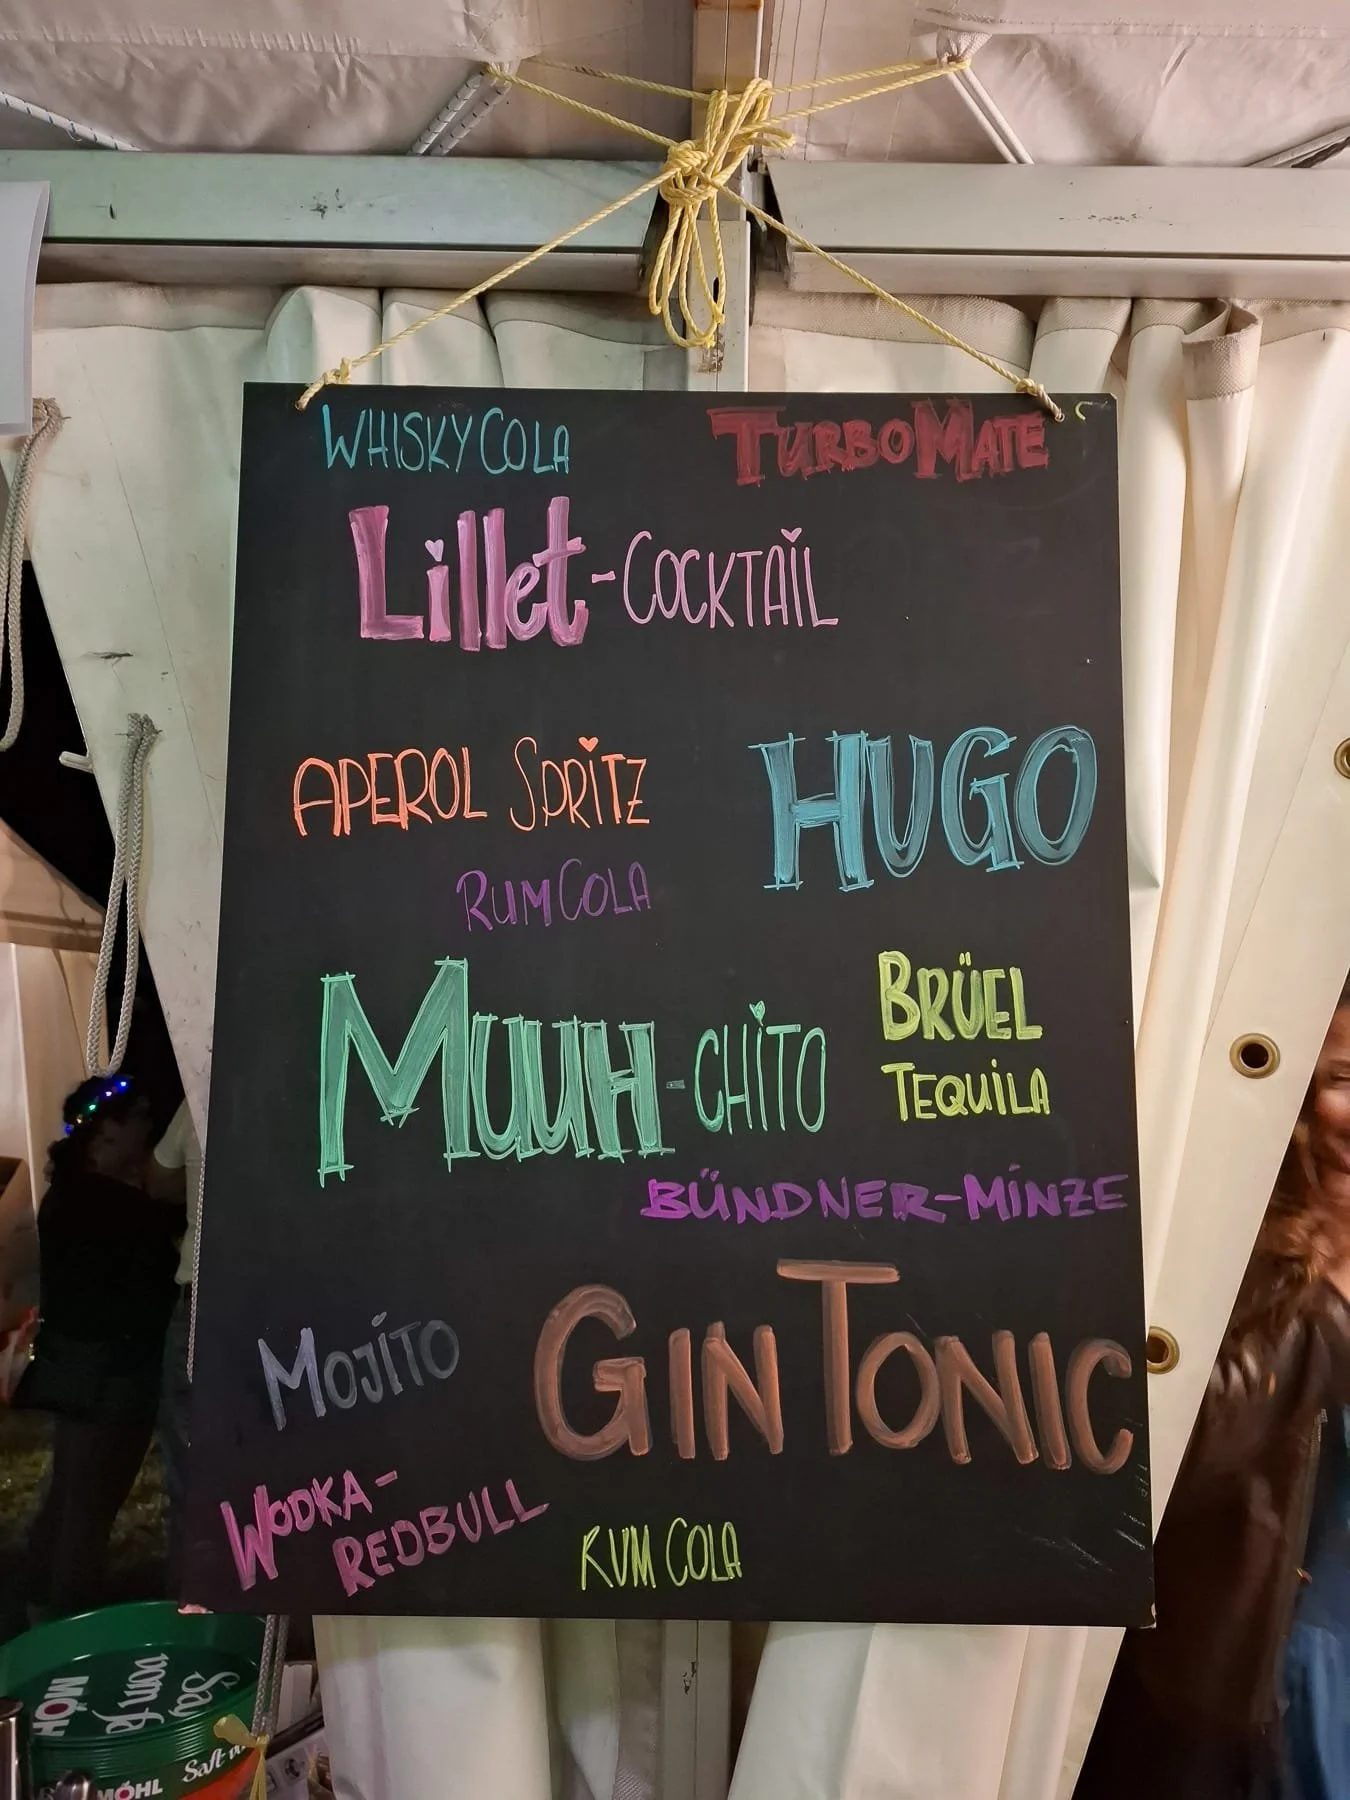 WHISKY COLA
TURBOMATE
Lillet-COCKTAIL
APEROL SPRITZ
HUGO
RUM COLA
MUUH-CHITO
BRÜEL
TEQUILA
BÜNDNER-MINZE
MOJITO
GIN TONIC
WODKA-
REDBULL
RUM COLA
MÖHL
Saft